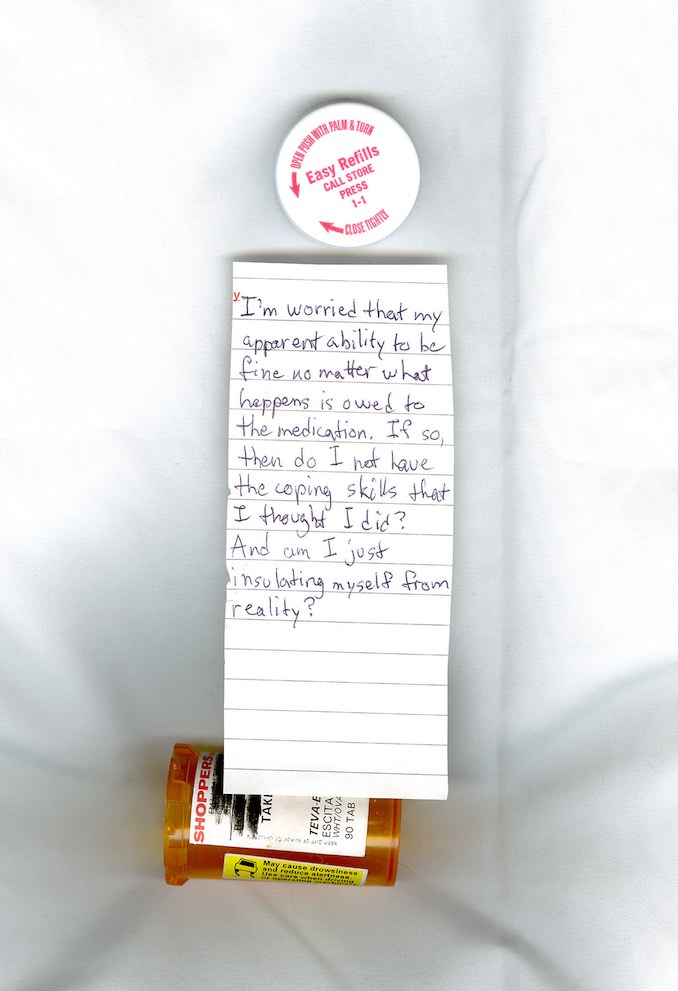 OPEN PUSH WITH PALM & TURN
Easy Refills
CALL STORE
PRESS
1-1
CLOSE TIGHTLY
I'm worried that my
apparent ability to be
fine no matter what
happens is owed to
the medication. If so,
then do I not have
the coping skills that
I thought I did?
And am I just
insulating myself from
reality?
SHOPPERS
TAKI
TEVA-E
ESCITA
WHT/OV
90 TAB
KEEP OUT OF REACH OF CHILDREN
May cause drowsiness
and reduce alertness.
Use care when driving
or operating machinery